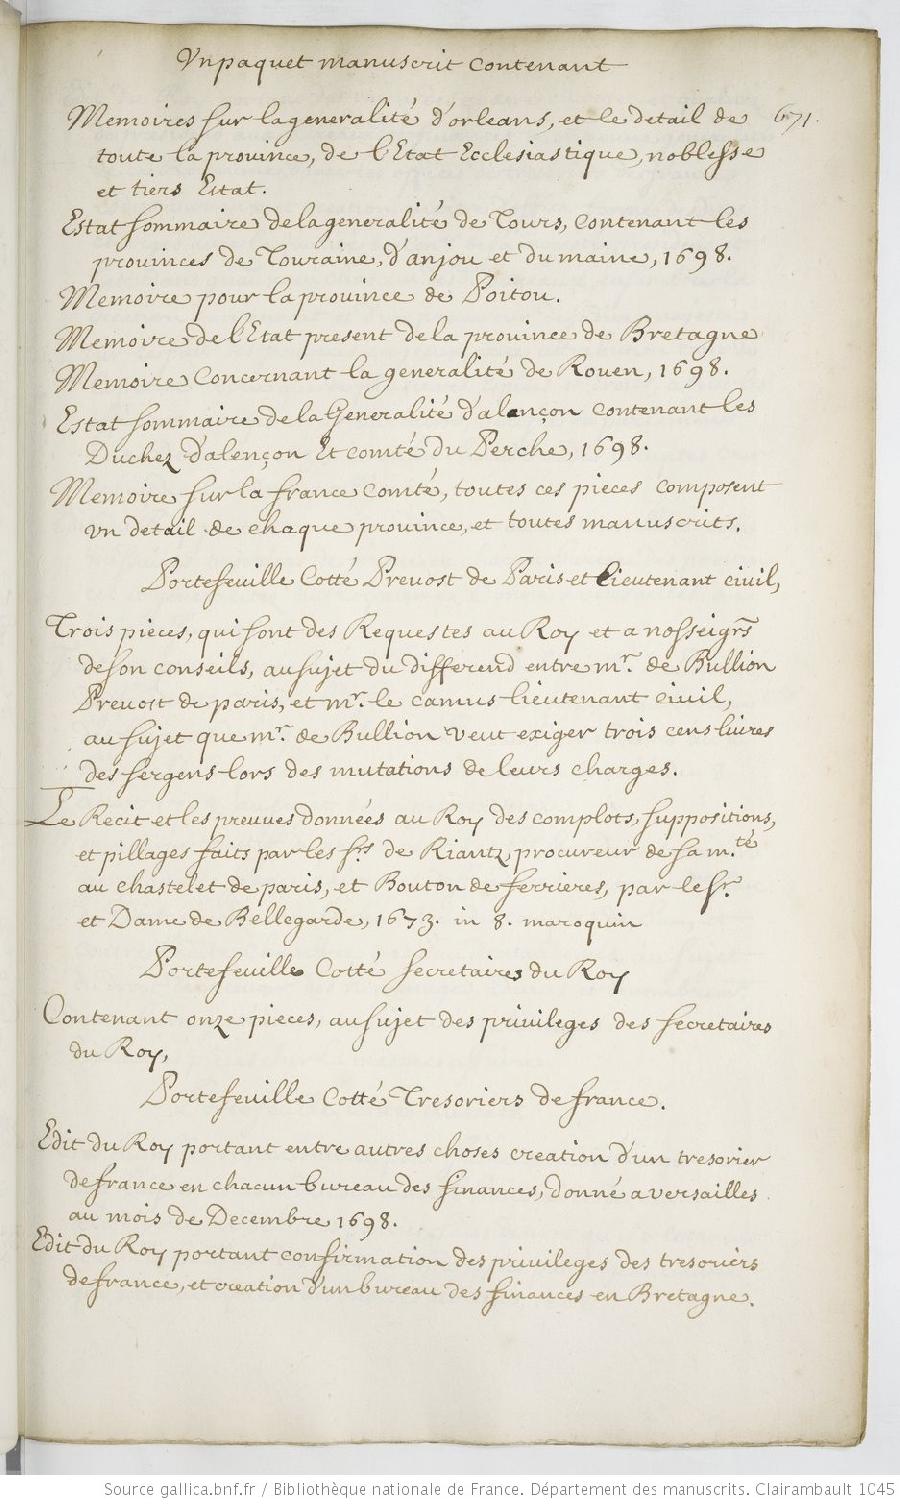 Vn paquet manuscrit contenant
671.
Memoires sur la generalité d'orleans, et le detail de
toute la prouince, de l'Etat Ecclesiastique, noblesse
et tiers Estat.
Estat sommaire de la generalité de Tours, contenant les
prouinces de Touraine, d'anjou et du maine, 1698.
Memoire pour la prouince de Poitou.
Memoire de l'Etat present de la prouince de Bretagne
Memoire Concernant la generalité de Rouen, 1698.
Estat sommaire de la Generalité d'alençon contenant les
Duchez d'alençon Et comté du Perche, 1698.
Memoire sur la france comté, toutes ces pieces composent
vn detail de chaque prouince, et toutes manuscrits.
Portefeuille Cotté Preuost de Paris et Lieutenant ciuil,
Trois pieces, qui sont des Requestes au Roy et a nosseigrs
de son conseils, au sujet du differend entre mr. de Bullion
Preuost de paris, et mr. le camus lieutenant ciuil,
au sujet que mr. de Bullion veut exiger trois cens liures
des sergens lors des mutations de leurs charges.
Le Recit et les preuues données au Roy des complots, suppositions,
et pillages faits par les srs de Riantz, procureur de sa m.té
au chastelet de paris, et Bouton de ferrieres, par le sr.
et Dame de Bellegarde, 1673. in 8. maroquin
Portefeuille Cotté secretaires du Roy
Contenant onze pieces, au sujet des priuileges des secretaires
du Roy,
Portefeuille Cotté Tresoriers de france.
Edit du Roy portant entre autres choses creation d'un tresorier
de france en chacun bureau des finances, donné a versailles
au mois de Decembre 1698.
Edit du Roy portant confirmation des priuileges des tresoriers
de france, et creation d'un bureau des finances en Bretagne.
Source gallica.bnf.fr / Bibliothèque nationale de France. Département des manuscrits. Clairambault 1045